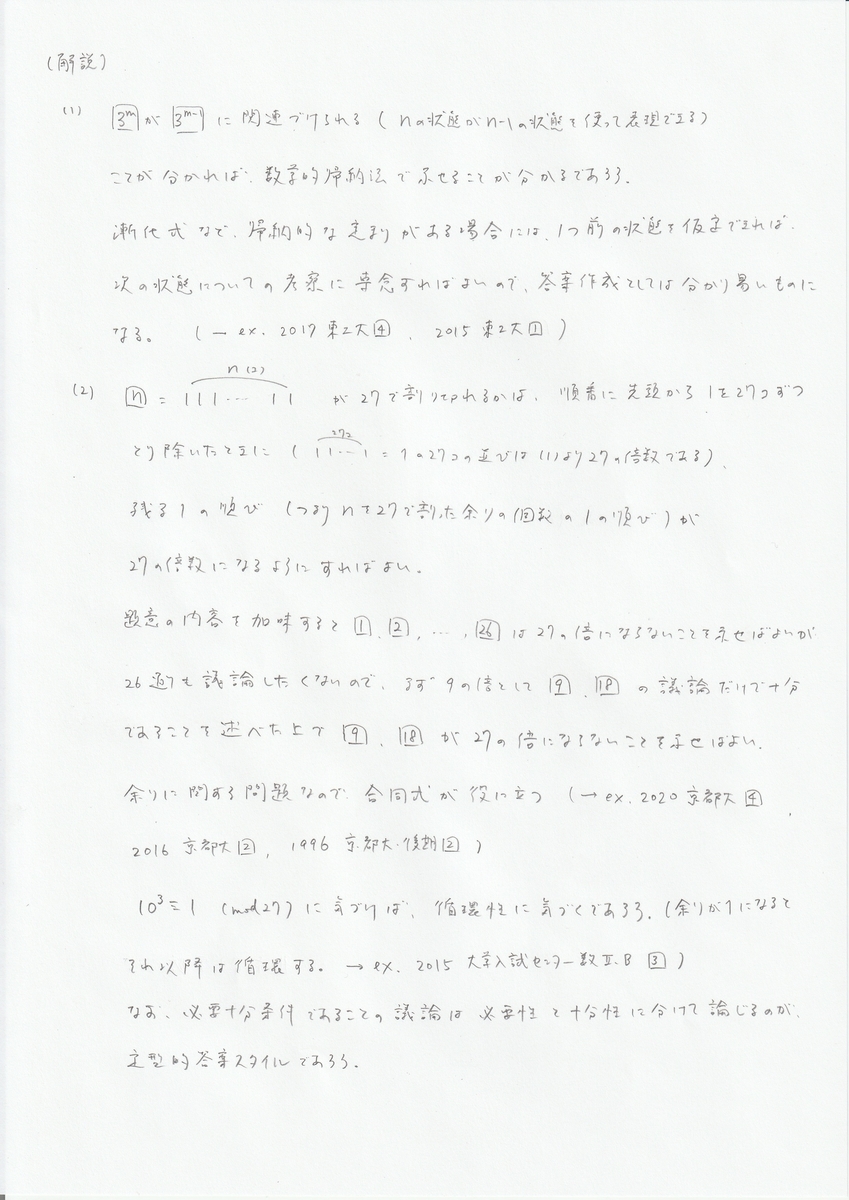 (解説)
(1) [3^m] が [3^{m-1}] に 関連づけられる ( nの状態がn-1の状態を使って表現できる)
ことが 分かれば、数学的帰納法 で示せることが分かるであろう.
漸化式 など、帰納的な定まりがある場合には、1つ前の状態を仮定できれば、
次の状態についての考察に専念すればよいので、答案作成としては分かり易いものに
なる。 ( → ex. 2017 東工大[4] 、 2015 東工大[1] )
(2) [n] = 111… 11 (n コ) が 27で割りきれるかは、順番に先頭から1を27コずつ
とり除いたときに ( 11…1 (27コ) = 1の27コの並びは(1)より27の倍数である)、
残る1の順び (つまりnを27で割った余りの個数の1の順び) が
27の倍数になるようにすればよい.
題意の内容を加味すると [1], [2], …, [26] は27の倍にならないことを示せばよいが
26通りも議論したくないので、まず 9の倍として [9], [18] の議論だけで十分
であることを述べた上で [9], [18] が27の倍にならないことを示せばよい.
余りに関する問題なので、合同式が役に立つ (→ ex. 2020 京都大 [4]
2016 京都大[2], 1996 京都大・後期[2] )
10^3 ≡ 1 (mod 27) に気づけば、循環性に気づくであろう. (余りが1になると
それ以降は循環する。 → ex. 2015 大学入試センター数II・B [3] )
なお、必要十分条件であることの議論は必要性と十分性に分けて論じるのが、
定型的答案スタイルであろう.